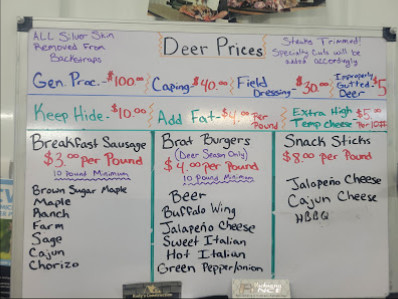 ALL Silver Skin
Removed From
Backstraps
Deer Prices
Steaks Trimmed!
Specialty Cuts will be
Gen. Proc. - $100.00
Caping - $40.00
Field
Dressing - $30.00
Improperly
Gutted
Deer $5
Keep Hide - $10.00
Add Fat - $4.00 Per
Pound
Extra High
Temp Cheese $5.00
Per 10#
Breakfast Sausage
$3.00 per Pound
10 Pound Minimum
Brown Sugar Maple
Maple
Ranch
Farm
Sage
Cajun
Chorizo
Brat Burgers
(Deer Season Only)
$4.00 per Pound
10 Pound Minimum
Beer
Buffalo Wing
Jalapeño Cheese
Sweet Italian
Hot Italian
Green Pepper/onion
Snack Sticks
$8.00 per Pound
Jalapeño Cheese
Cajun Cheese